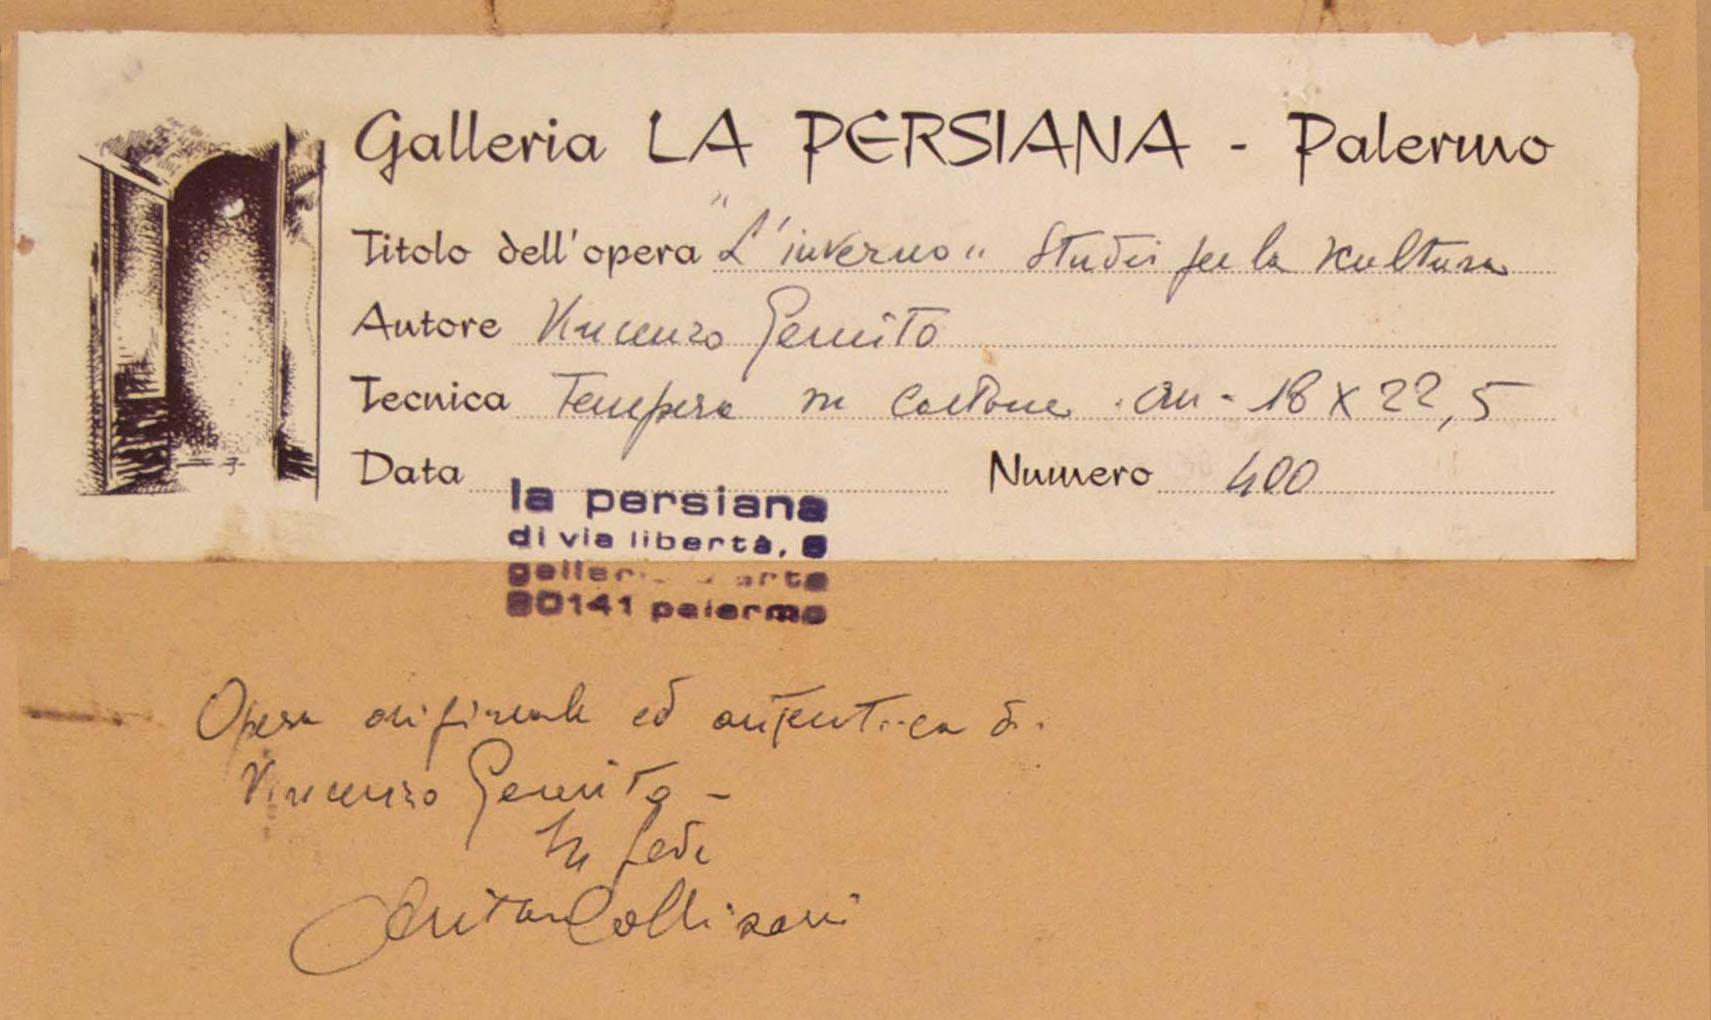 Galleria LA PERSIANA - Palermo
Titolo dell'opera "L'inverno" Studi per la scultura
Autore Vincenzo Gemito
Tecnica Tempera su cartone cm - 18 x 22,5
Data
Numero 400
la persiana
di via libertà,
galleria arte
90141 palermo
Opera originale ed autentica di
Vincenzo Gemito -
In fede
Collisani